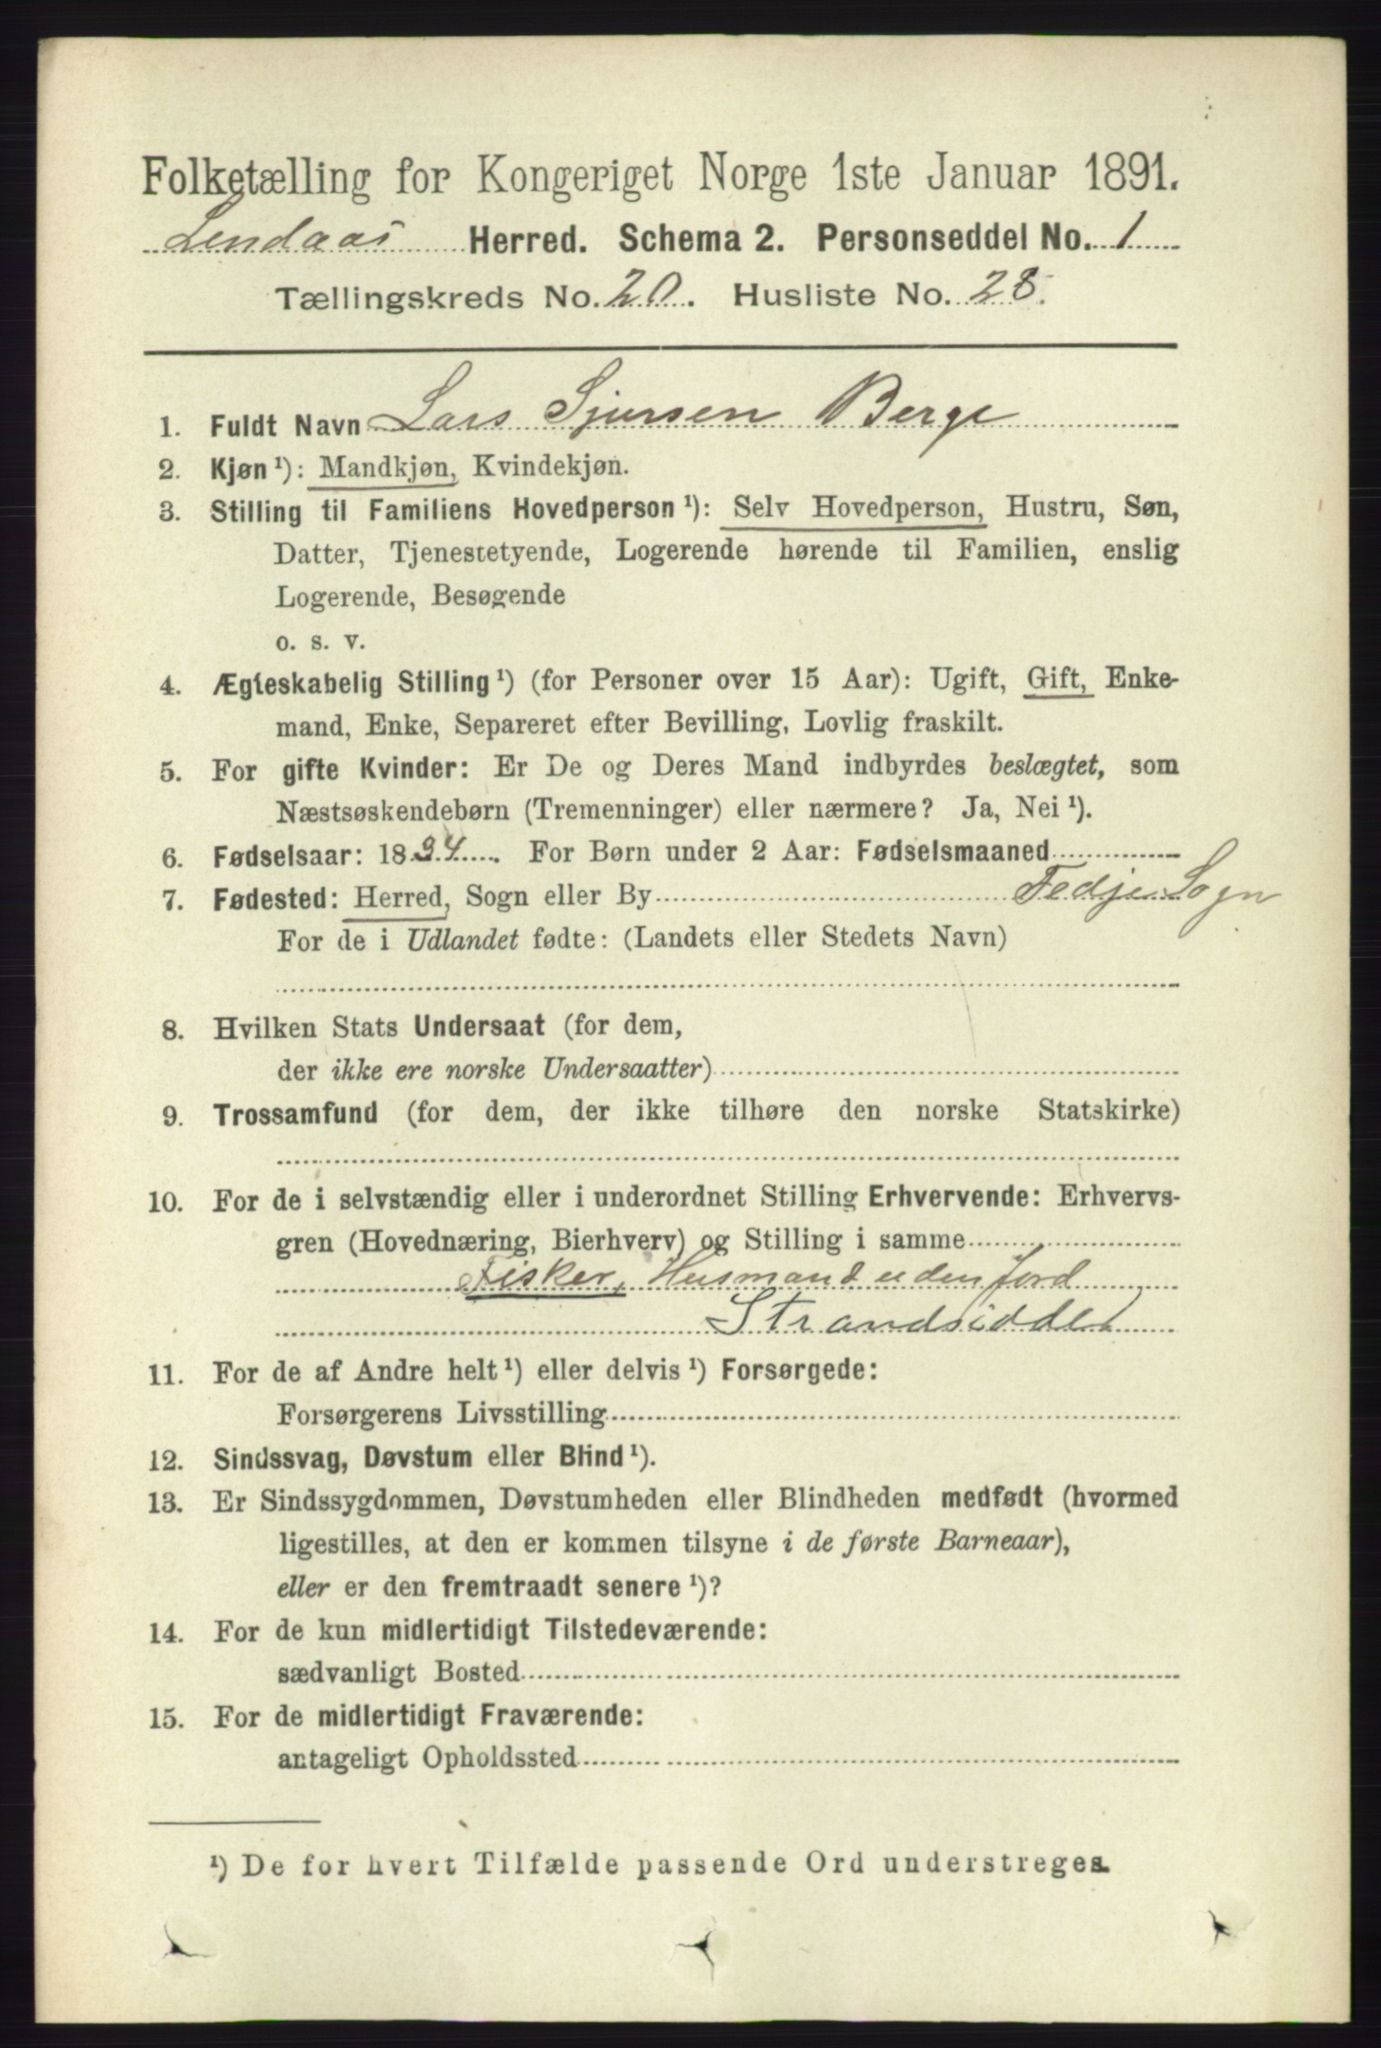 Folketælling for Kongeriget Norge 1ste Januar 1891.
Lindaas Herred. Schema 2. Personseddel No. 1
Tællingskreds No. 20. Husliste No. 28.
1. Fuldt Navn Lars Sjursen Berge
2. Kjøn ¹): Mandkjøn, Kvindekjøn.
3. Stilling til Familiens Hovedperson ¹): Selv Hovedperson, Hustru, Søn,
Datter, Tjenestetyende, Logerende hørende til Familien, enslig
Logerende, Besøgende
o. s. v.
4. Ægteskabelig Stilling ¹) (for Personer over 15 Aar): Ugift, Gift, Enke-
mand, Enke, Separeret efter Bevilling, Lovlig fraskilt.
5. For gifte Kvinder: Er De og Deres Mand indbyrdes beslægtet, som
Næstsøskendebørn (Tremenninger) eller nærmere? Ja, Nei ¹).
6. Fødselsaar: 1834. For Børn under 2 Aar: Fødselsmaaned
7. Fødested: Herred, Sogn eller By Fedje Sogn
For de i Udlandet fødte: (Landets eller Stedets Navn)
8. Hvilken Stats Undersaat (for dem,
der ikke ere norske Undersaatter)
9. Trossamfund (for dem, der ikke tilhøre den norske Statskirke)
10. For de i selvstændig eller i underordnet Stilling Erhvervende: Erhvervs-
gren (Hovednæring, Bierhverv) og Stilling i samme
Fisker, Husmand uden Jord
Strandsidder
11. For de af Andre helt ¹) eller delvis ¹) Forsørgede:
Forsørgerens Livsstilling
12. Sindssvag, Døvstum eller Blind ¹).
13. Er Sindssygdommen, Døvstumheden eller Blindheden medfødt (hvormed
ligestilles, at den er kommen tilsyne i de første Barneaar),
eller er den fremtraadt senere ¹)?
14. For de kun midlertidigt Tilstedeværende:
sædvanligt Bosted
15. For de midlertidigt Fraværende:
antageligt Opholdssted
¹) De for hvert Tilfælde passende Ord understreges.